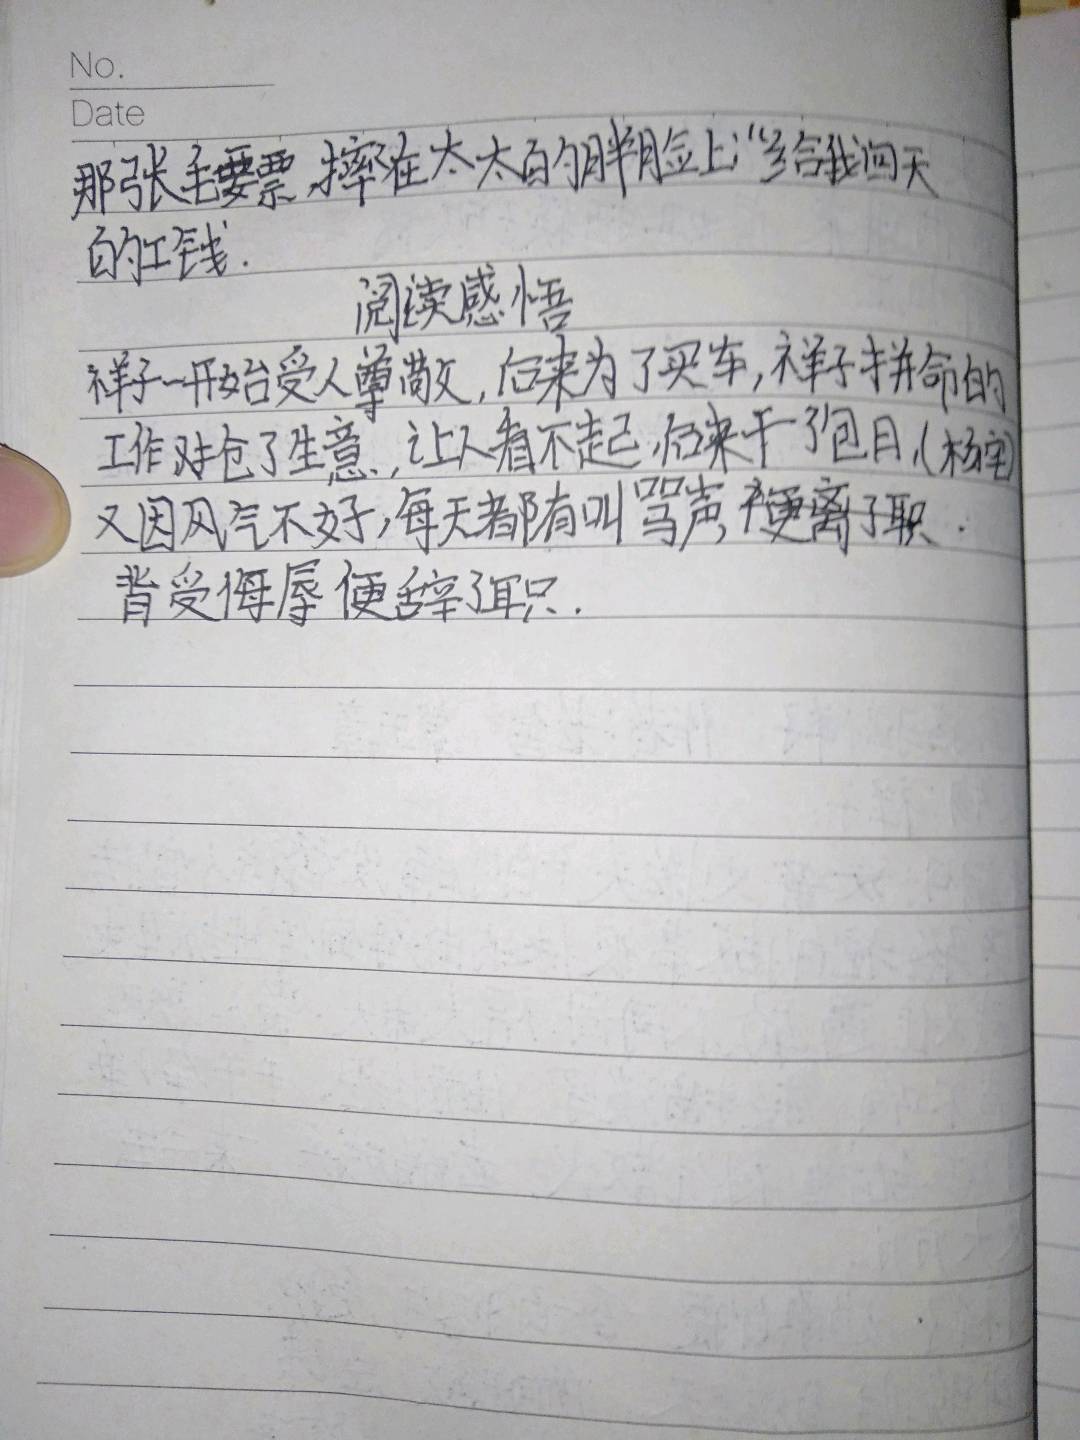 No.
Date
那张毛票摔在太太的胖脸上:“给我四天
的工钱.
阅读感悟
祥子一开始受人尊敬,后来为了买车,祥子拼命的
工作抢了生意,让人看不起,后来干了包月,(杨宅)
又因风气不好,每天都有叫骂声,便离了职.
背受侮辱便辞了职.